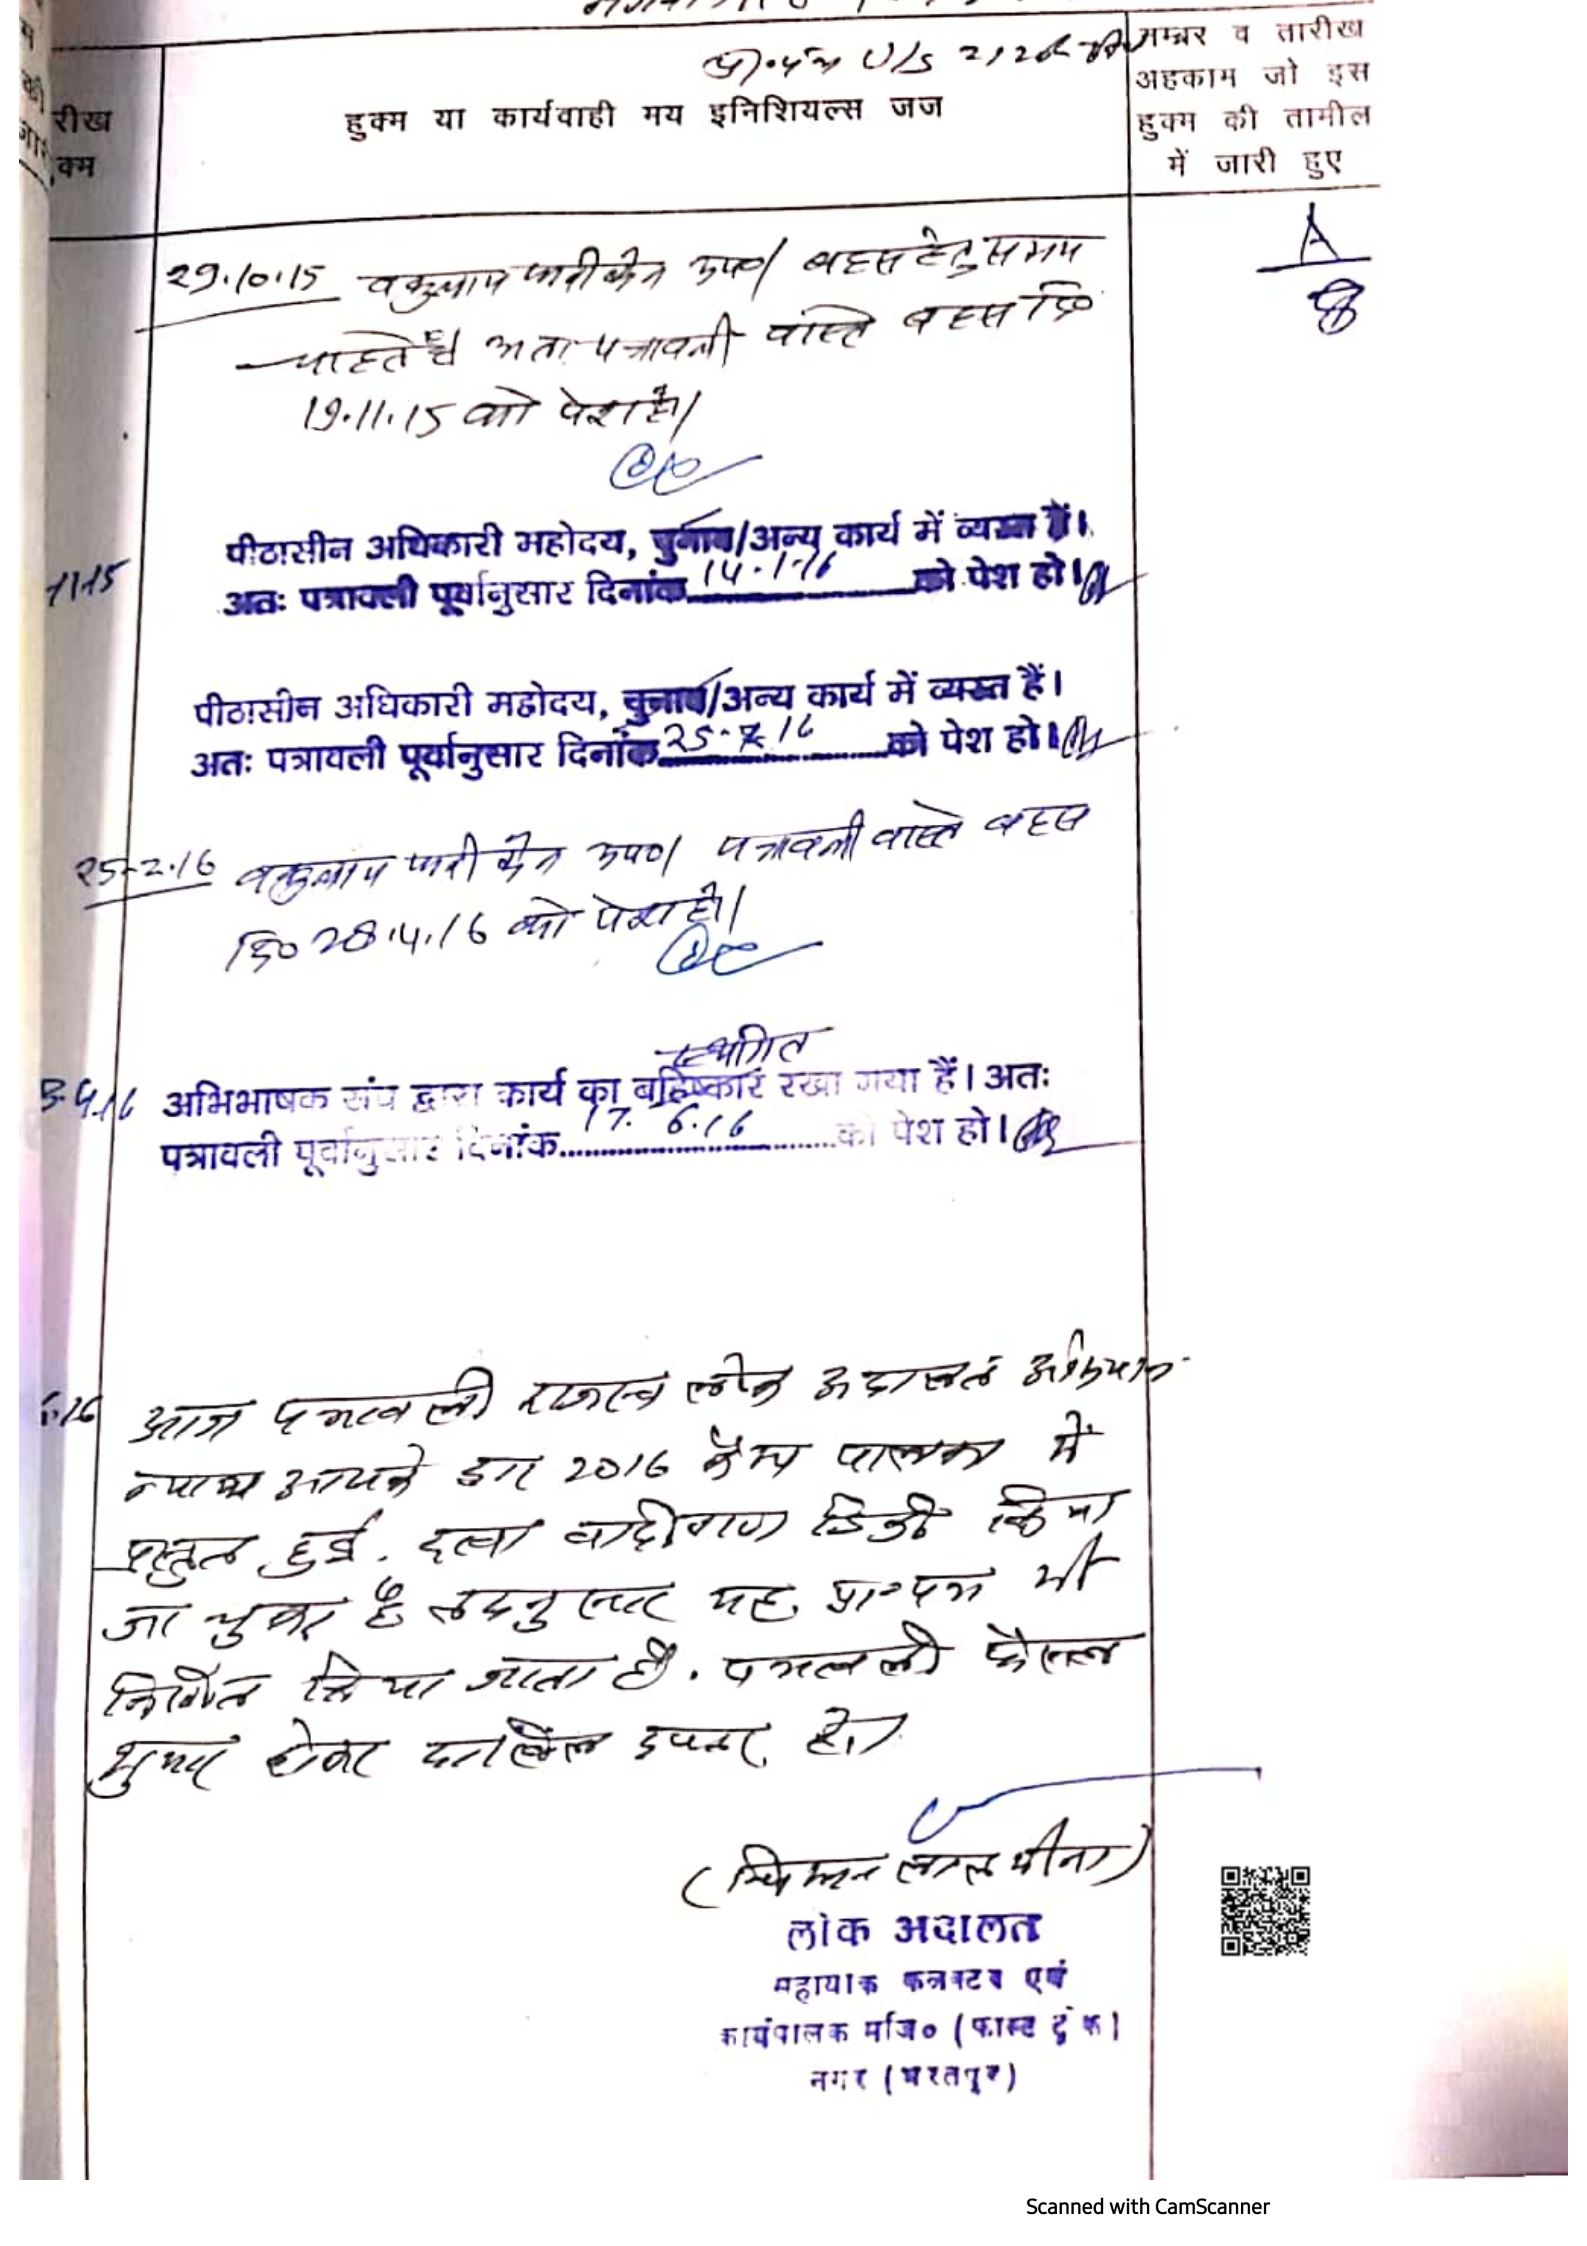 प्रा.पत्र U/S 212
रीख
क्म
हुक्म या कार्यवाही मय इनिशियल्स जज
नम्बर व तारीख
अहकाम जो इस
हुक्म की तामील
में जारी हुए
A
8
29.10.15 वकुलाय फरीकेन उप0। बहस हेतु समय
चाहते है। अतः पत्रावली वास्ते बहस दि0
19.11.15 को पेश हो।
11.15
पीठासीन अधिकारी महोदय, चुनाव/अन्य कार्य में व्यस्त हैं।
अतः पत्रावली पूर्वानुसार दिनांक 14.1.16 को पेश हो।
पीठासीन अधिकारी महोदय, चुनाव/अन्य कार्य में व्यस्त हैं।
अतः पत्रावली पूर्वानुसार दिनांक 25.2.16 को पेश हो।
25-2.16 वकुलाय फरीकेन उप0। पत्रावली वास्ते बहस
दि0 28.4.16 को पेश हो।
स्थगित
8.4.16 अभिभाषक संघ द्वारा कार्य का बहिष्कार रखा गया हैं। अतः
पत्रावली पूर्वानुसार दिनांक 17.6.16 को पेश हो।
6.16 आज पत्रावली राजस्व लोक अदालत अभियान
न्याय आपके द्वार 2016 कैम्प पालका में
प्रस्तुत हुई. दावा वादीगण डिक्री किया
जा चुका है तदनुसार यह प्रा0पत्र भी
निर्णित किया जाता है. पत्रावली फैसल
शुमार होकर दाखिल दफ्तर हो।
( लाल मीना)
लोक अदालत
सहायक कलक्टर एवं
कार्यपालक मजि० (फास्ट ट्रेक)
नगर (भरतपुर)
Scanned with CamScanner